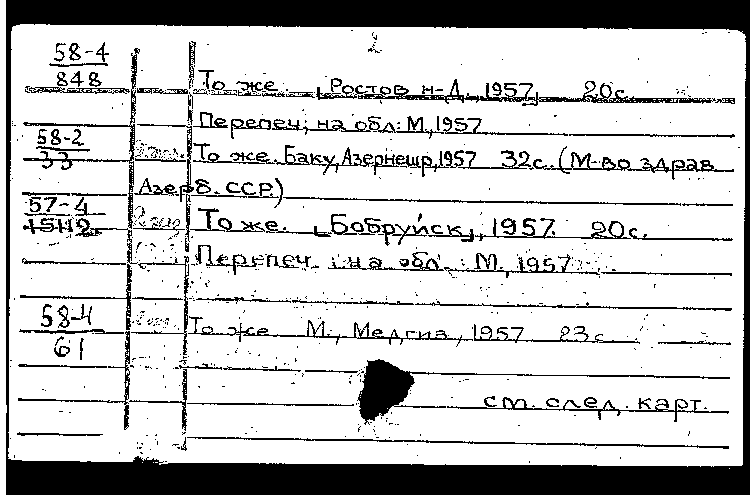 2
58-4
848
То же. [Ростов н-Д., 1957] 20с.
Перепеч.; на обл.: М., 1957
58-2
33
То же. Баку, Азернешр, 1957 32с. (М-во здрав.
Азерб. ССР.)
57-4
15112
То же. [Бобруйск], 1957. 20с.
Перепеч.: на обл.: М., 1957
58-4
61
То же М., Медгиз, 1957 23с
см. след. карт.